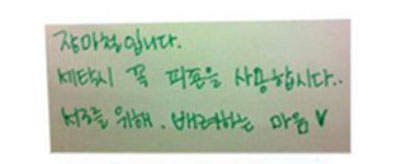 장마철입니다.
세탁시 꼭 피죤을 사용합시다..
서로를 위해. 배려하는 마음♥